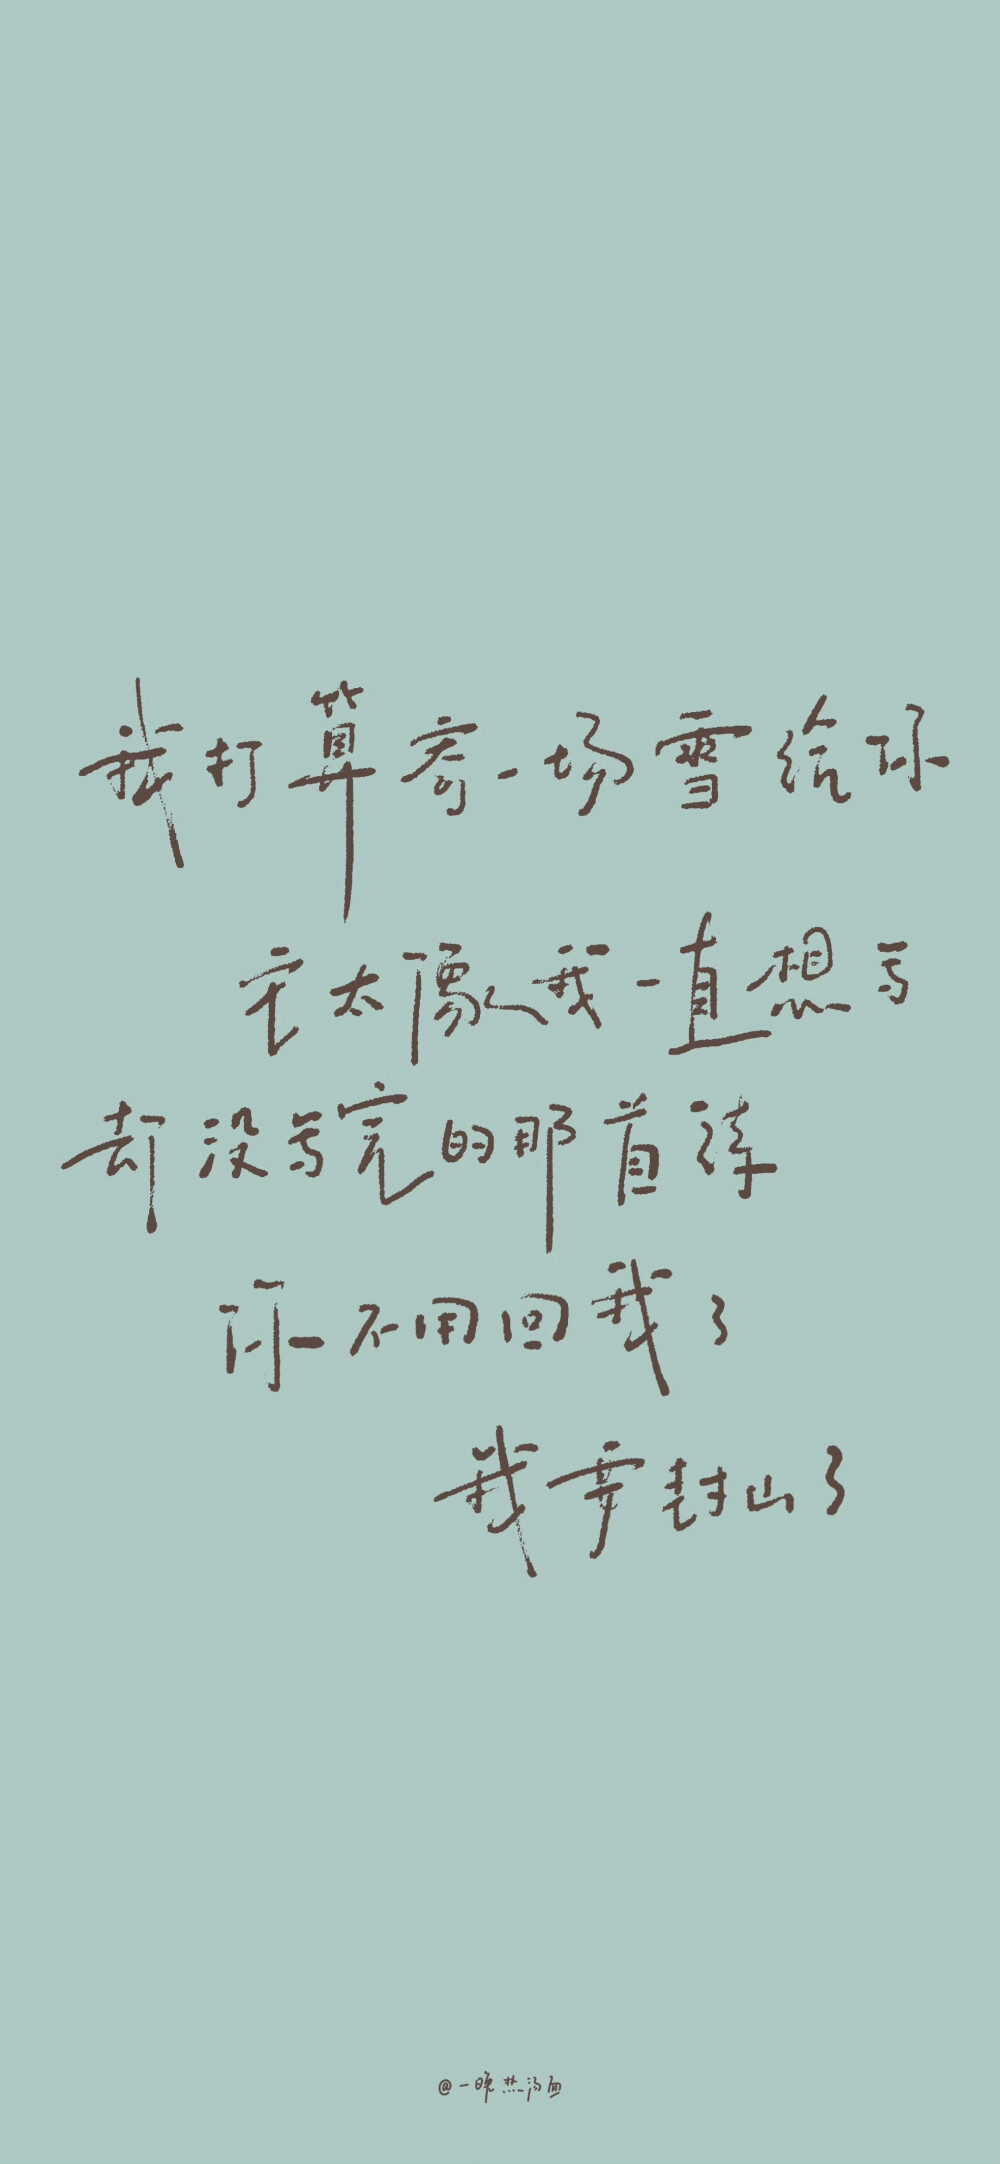 我打算寄一场雪给你
它太像我一直想写
却没写完的那首诗
你不用回我了
我要封山了
@一晚热汤面